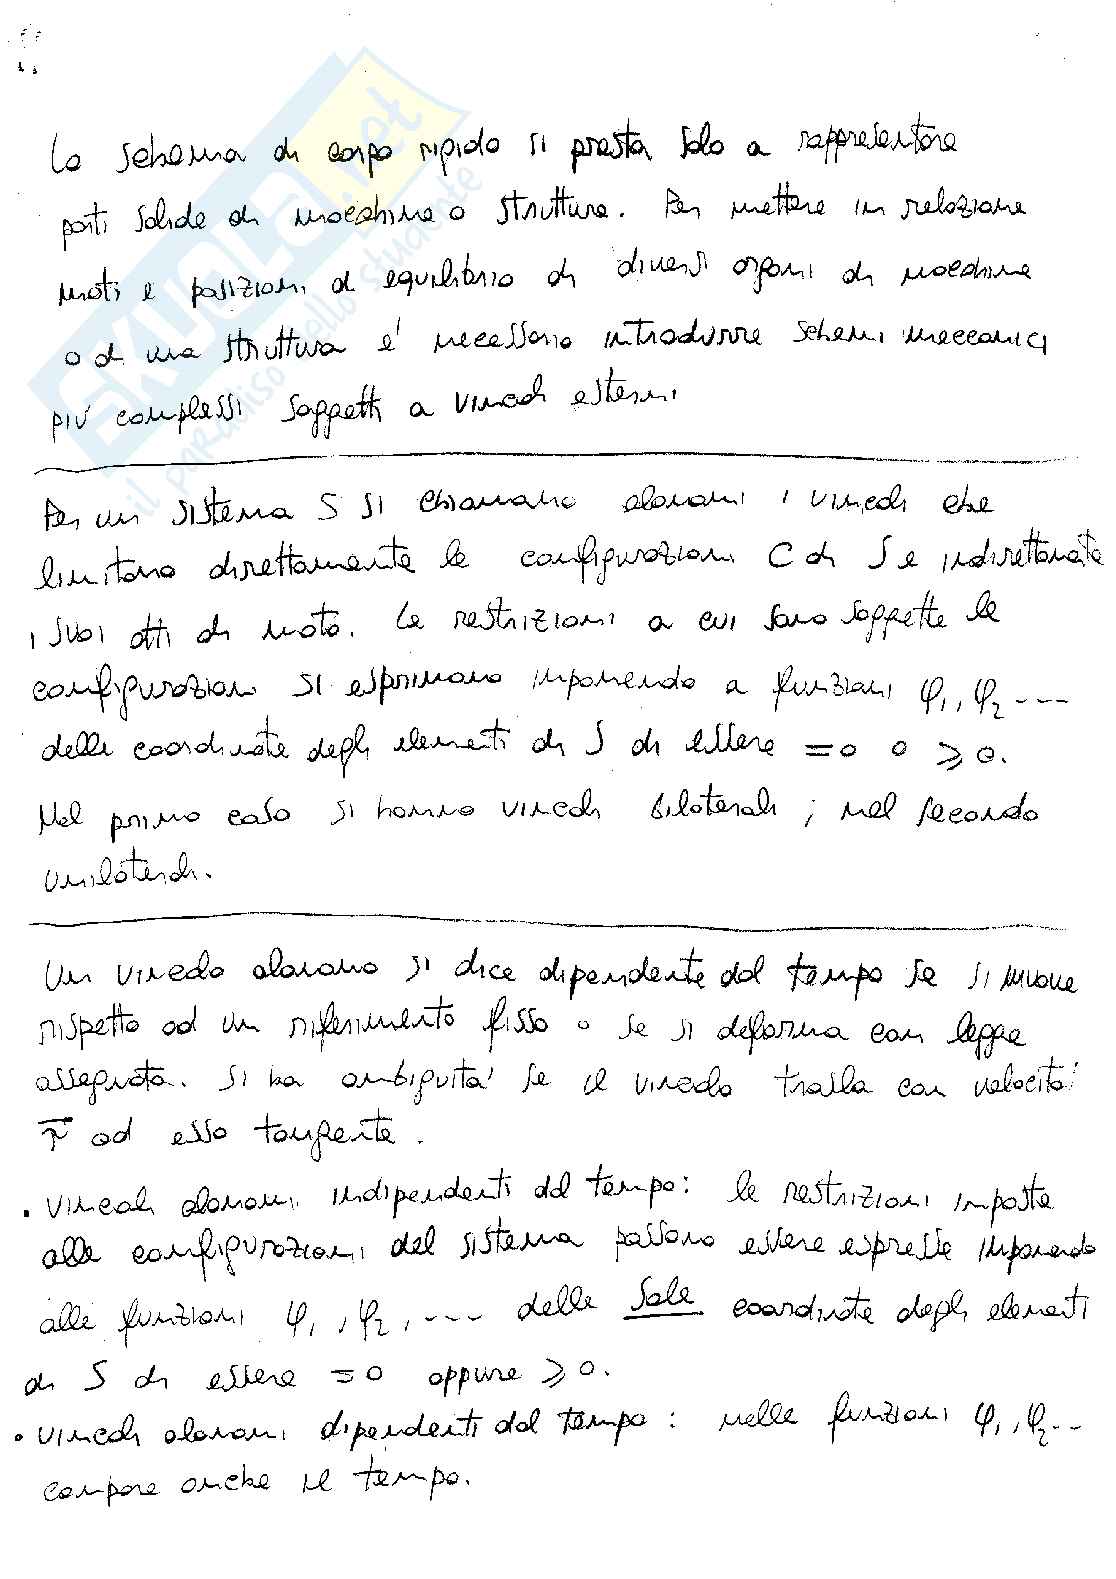 SKUOLA.net
il paradiso dello studente
Lo schema di corpo rigido si presta solo a rappresentare
parti solide di macchine o strutture. Per mettere in relazione
moti e posizioni di equilibrio di diversi organi di macchine
o di una struttura e' necessario introdurre schemi meccanici
più complessi soggetti a vincoli esterni
Per un sistema S si chiamano olonomi i vincoli che
limitano direttamente le configurazioni C di S e indirettamente
i suoi atti di moto. Le restrizioni a cui sono soggette le
configurazioni si esprimono imponendo a funzioni φ1, φ2 ----
delle coordinate degli elementi di S di essere =0 o ≥0.
Nel primo caso si hanno vincoli bilaterali; nel secondo
unilaterali.
Un vincolo olonomo si dice dipendente dal tempo se si muove
rispetto ad un riferimento fisso o se si deforma con legge
assegnata. Si ha ambiguita' se il vincolo trasla con velocita'
ad esso tangente.
• Vincoli olonomi indipendenti dal tempo: le restrizioni imposte
alle configurazioni del sistema possono essere espresse imponendo
alle funzioni φ1, φ2, ---- delle sole coordinate degli elementi
di S di essere =0 oppure ≥0.
• Vincoli olonomi dipendenti dal tempo: nelle funzioni φ1, φ2--
compare anche il tempo.